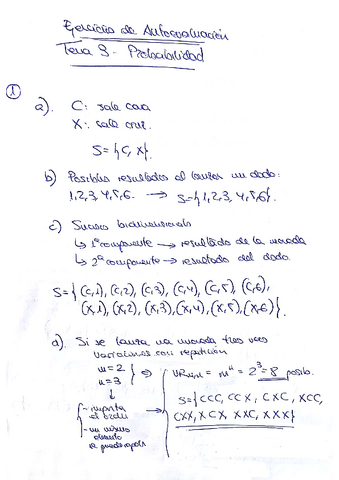 Ejercicios de Autoevaluación
Tema 3. Probabilidad
1
a). C: sale cara
X: sale cruz.
S={C, X}.
b) Posibles resultados al lanzar un dado:
1,2,3,4,5,6. → S={1,2,3,4,5,6}.
c) Suceso bidimensional
↳ 1ª componente → resultado de la moneda
↳ 2ª componente → resultado del dado.
S={(C,1), (C,2), (C,3), (C,4), (C,5), (C,6),
(X,1), (X,2), (X,3), (X,4), (X,5), (X,6)}.
d). Si se lanza una moneda tres veces
Variaciones con repetición
m=2
n=3 } ⇒ VRm,n = mⁿ = 2³ = 8 posib.
↓
{ - importa el orden
- un mismo elemento se puede repetir
S={CCC, CCX, CXC, XCC,
CXX, XCX, XXC, XXX}